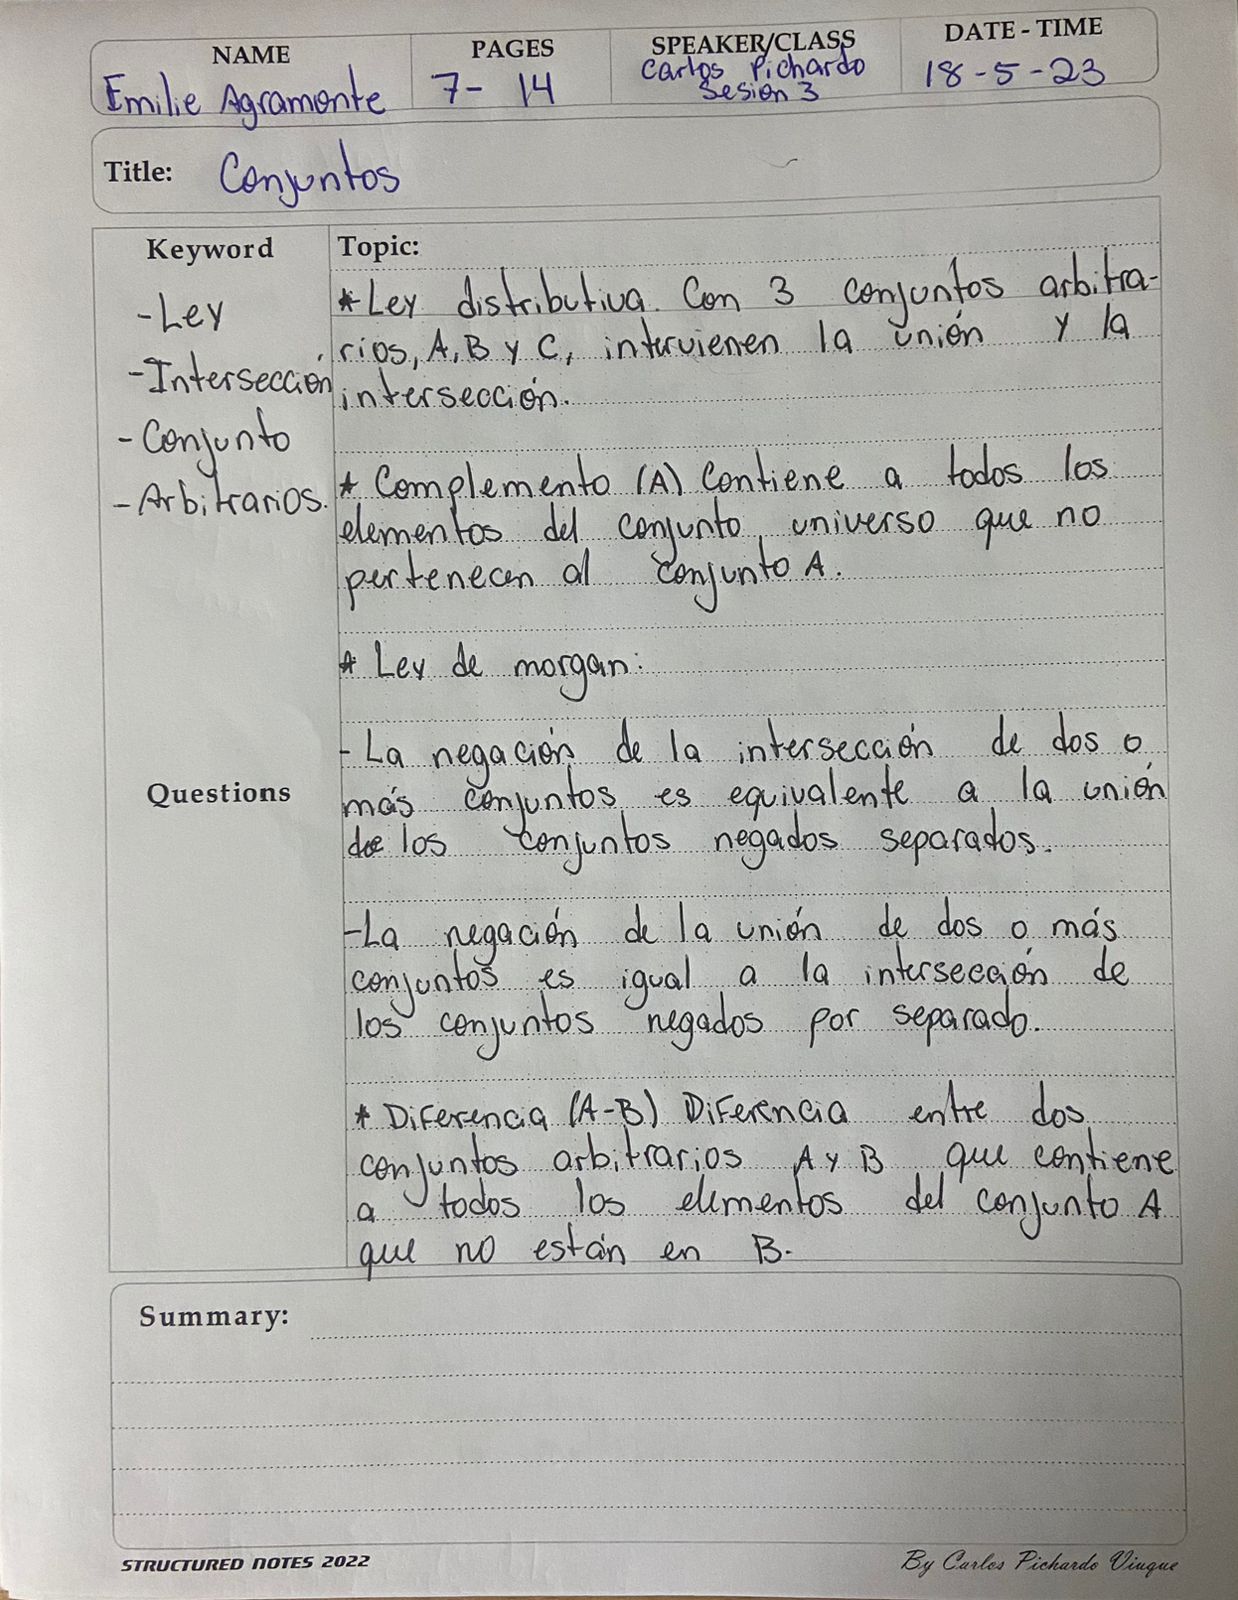 NAME
PAGES
SPEAKER/CLASS
DATE - TIME
Emilie Agramonte
7- 14
Carlos Pichardo
Sesion 3
18-5-23
Title: Conjuntos
Keyword
-Ley
-Intersección
- Conjunto
- Arbitrarios.
Questions
Topic:
* Ley distributiva. Con 3 conjuntos arbitra-
rios, A, B y C, intervienen la unión y la
intersección.
* Complemento (A) Contiene a todos los
elementos del conjunto universo que no
pertenecen al conjunto A.
* Ley de morgan:
- La negación de la intersección de dos o
más conjuntos es equivalente a la unión
de los conjuntos negados separados.
-La negación de la unión de dos o más
conjuntos es igual a la intersección de
los conjuntos negados por separado.
* Diferencia (A-B) Diferencia entre dos
conjuntos arbitrarios A y B que contiene
a todos los elementos del conjunto A
que no están en B.
Summary:
STRUCTURED NOTES 2022
By Carlos Pichardo Viuque